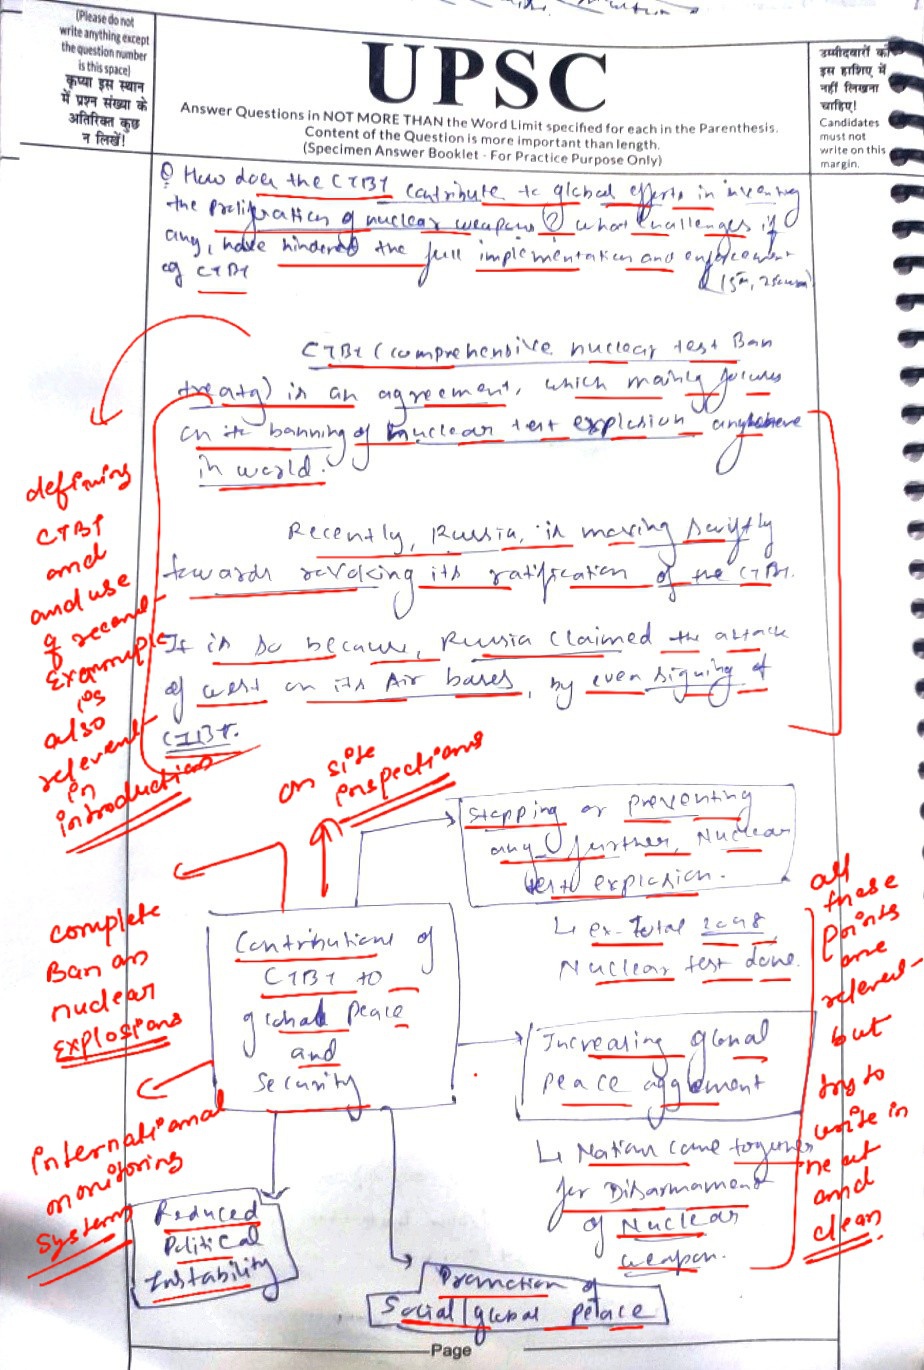 (Please do not
write anything except
the question number
is this space)
कृप्या इस स्थान
में प्रश्न संख्या के
अतिरिक्त कुछ
न लिखें!
UPSC
Answer Questions in NOT MORE THAN the Word Limit specified for each in the Parenthesis.
Content of the Question is more important than length.
(Specimen Answer Booklet - For Practice Purpose Only)
उम्मीदवारों को
इस हाशिए में
नहीं लिखना
चाहिए!
Candidates
must not
write on this
margin.
Q How does the CTBT contribute to global efforts in
the proliferation of nuclear weapons ? what challenges if
any, have hindered the full implementation and enforcement
of CTBT
(15m, 250
CTBT (comprehensive nuclear test Ban
treaty) is an agreement, which mainly focuses
on its banning of nuclear test explosion anywhere
in world.
Recently, Russia, is moving swiftly
towards revoking its ratification of the CTBT.
It is so because, Russia claimed the attack
of west on its Air bases, by even signing of
CTBT.
defining
CTBT
and
and use
of recent
Exammple
is
also
relevent
in
introduction
on site
inspections
complete
Ban on
nuclear
Explosions
international
monitoring
system
Contributions of
CTBT to
global peace
and
Security
Stopping or preventing
any further, Nuclear
test explosion.
↳ ex-Total
Nuclear test done.
Increasing global
peace
↳ Nation came together
for Disarmament
of Nuclear
weapon.
Reduced
Political
Instability
Promotion of
Social/global peace
all
these
points
are
relevent
but
try to
write in
neat
and
clean
Page